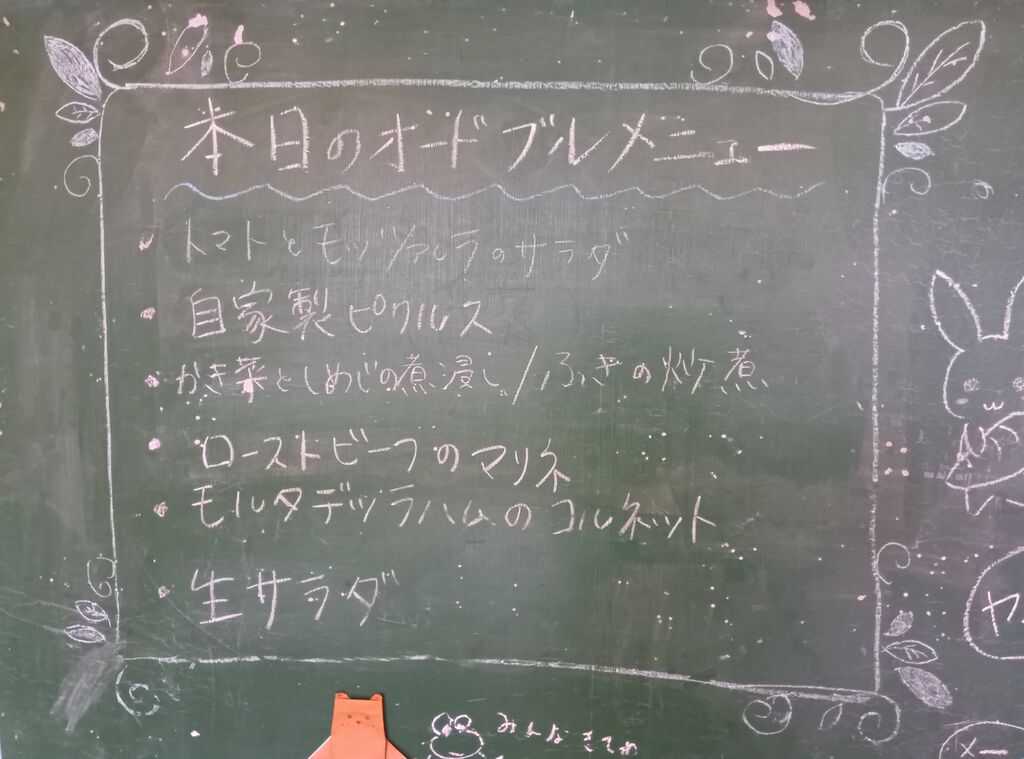 本日のオードブルメニュー
・トマトとモッツァレラのサラダ
・自家製ピクルス
・かき菜としめじの煮浸し/ふきの炒ケ煮
・ローストビーフのマリネ
・モルタデッラハムのコルネット
・生サラダ
みんなきてね
メー